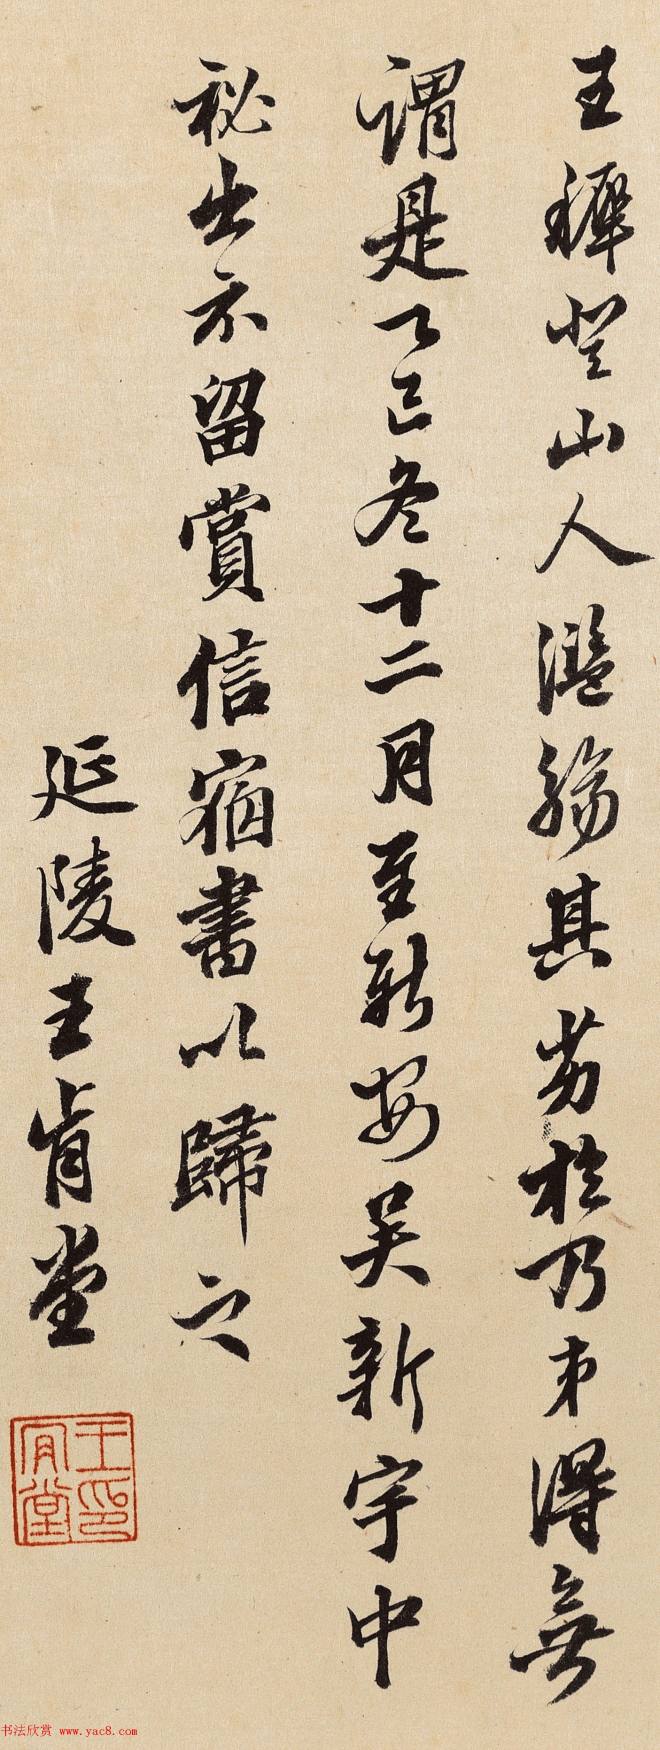 王穉登山人滥觞其芳於乃弟得無
謂是乙巳冬十二月至新安吴新宇中
祕出示留賞信宿書以歸之
延陵王肯堂
王肯堂印
书法欣赏 www.yac8.com